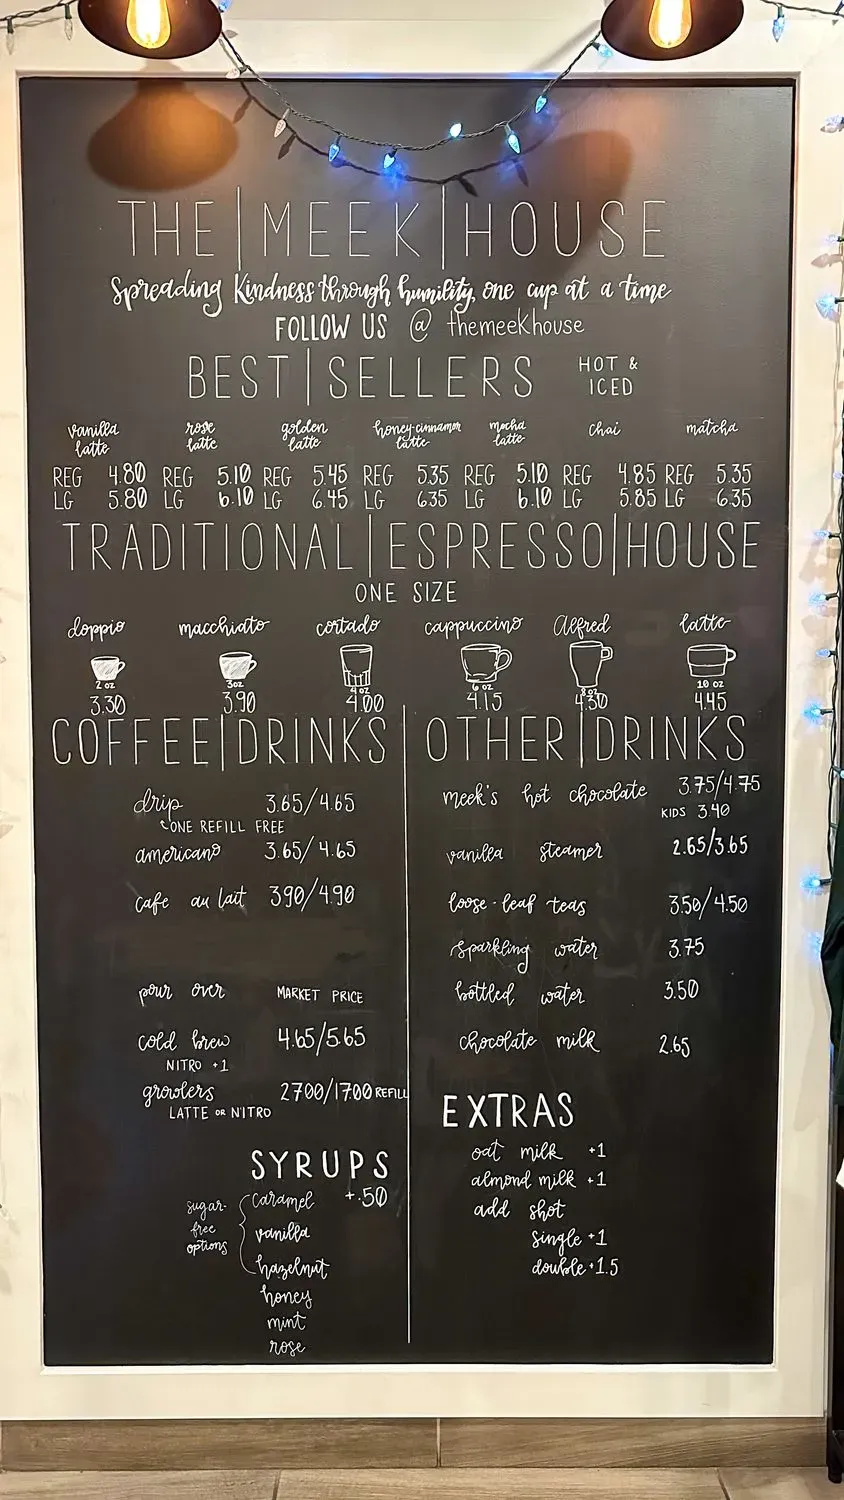 THE | MEEK | HOUSE
Spreading Kindness through humility, one cup at a time
FOLLOW US @ themeekhouse
BEST | SELLERS HOT & ICED
vanilla latte rose latte golden latte honey-cinnamon latte mocha latte chai matcha
REG 4.80 REG 5.10 REG 5.45 REG 5.35 REG 5.10 REG 4.85 REG 5.35
LG 5.80 LG 6.10 LG 6.45 LG 6.35 LG 6.10 LG 5.85 LG 6.35
TRADITIONAL | ESPRESSO | HOUSE
ONE SIZE
doppio macchiato cortado cappuccino Alfred latte
2 oz 3oz 4 oz 6 oz 8 oz 10 oz
3.30 3.90 4.00 4.15 4.30 4.45
COFFEE | DRINKS
drip 3.65/4.65
ONE REFILL FREE
americano 3.65/4.65
cafe au lait 3.90/4.90
pour over MARKET PRICE
cold brew 4.65/5.65
NITRO +1
growlers 27.00/17.00 REFILL
LATTE OR NITRO
SYRUPS
+.50
sugar-free options
caramel
vanilla
hazelnut
honey
mint
rose
OTHER | DRINKS
meek's hot chocolate 3.75/4.75
KIDS 3.40
vanilla steamer 2.65/3.65
loose-leaf teas 3.50/4.50
sparkling water 3.75
bottled water 3.50
chocolate milk 2.65
EXTRAS
oat milk +1
almond milk +1
add shot
single +1
double +1.5